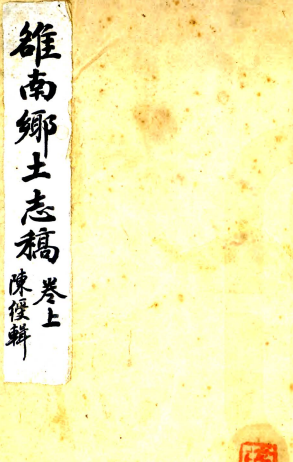 雒南鄉土志稿
卷上
陳輯